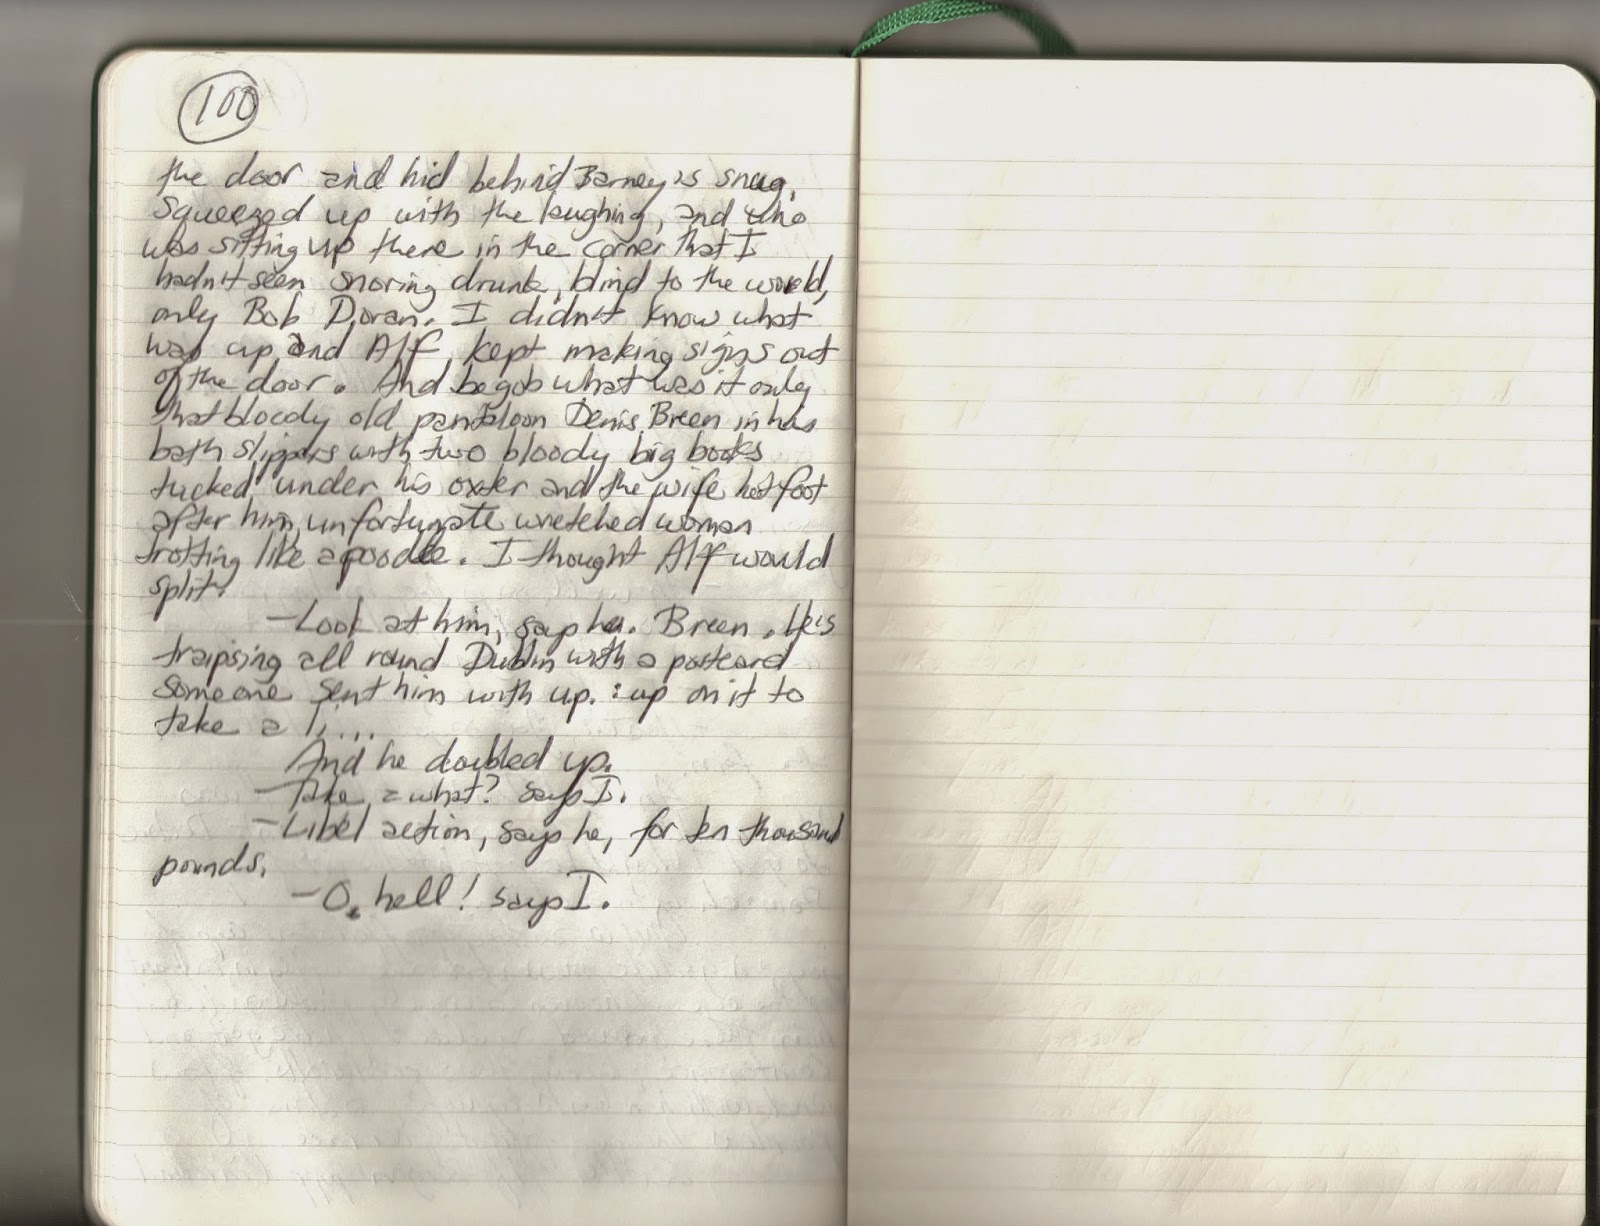 100
the door and hid behind Barney's snug,
squeezed up with the laughing, and who
was sitting up there in the corner that I
hadn't seen snoring drunk, blind to the world,
only Bob Doran. I didn't know what
was up and Alf kept making signs out
of the door. And begob what was it only
that bloody old pantaloon Denis Breen in his
bath slippers with two bloody big books
tucked under his oxter and the wife hotfoot
after him, unfortunate wretched woman
trotting like a poodle. I thought Alf would
split.
-Look at him, says he. Breen. He's
traipsing all round Dublin with a postcard
someone sent him with up. : up on it to
take a li...
And he doubled up.
-Take a what? says I.
-Libel action, says he, for ten thousand
pounds.
-O, hell! says I.